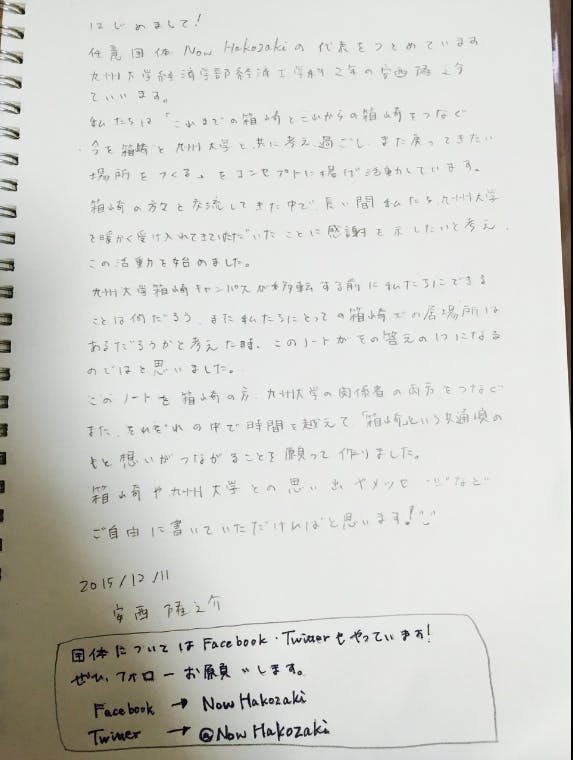 はじめまして!
任意団体 Now Hakozakiの代表をつとめています
九州大学経済学部経済工学科2年の安西隆之介
といいます。
私たちは「これまでの箱崎とこれからの箱崎をつなぐ
今を箱崎と九州大学と共に考え、過ごし、また戻ってきたい
場所をつくる」をコンセプトに掲げ活動しています。
箱崎の方々と交流してきた中で、長い間私たち九州大学
を暖かく受け入れてきていただいたことに感謝を示したいと考え、
この活動を始めました。
九州大学箱崎キャンパスが移転する前に私たちにできる
ことは何だろう、また私たちにとっての箱崎での居場所は
あるだろうかと考えた時、このノートがその答えの1つになる
のではと思いました。
このノートを箱崎の方、九州大学の関係者の両方をつなぐ
また、それぞれの中で時間を越えて、「箱崎」という共通項の
もと想いがつながることを願って作りました。
箱崎や九州大学との思い出やメッセージなど
ご自由に書いていただければと思います!
2015/12/11
安西隆之介
団体についてはFacebook・Twitterもやっています!
ぜひ、フォローお願いします。
Facebook → Now Hakozaki
Twitter → @Now Hakozaki